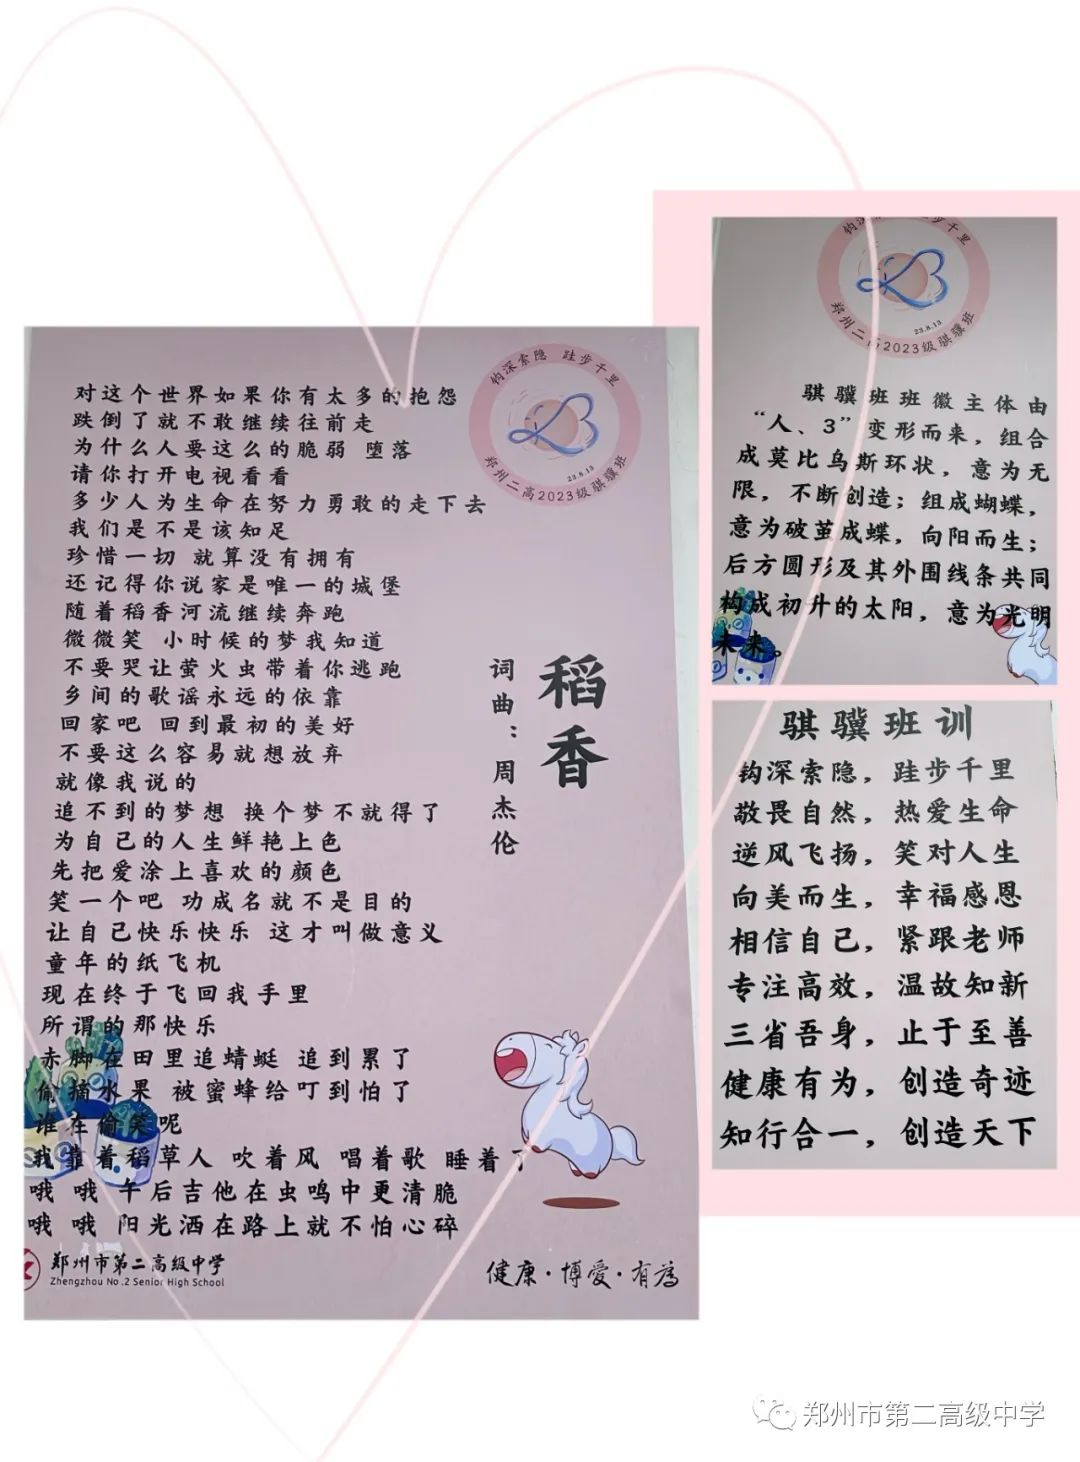 钩深索隐 跬步千里
23.8.13
郑州二高2023级骐骥班
稻香
词曲：周杰伦
对这个世界如果你有太多的抱怨
跌倒了就不敢继续往前走
为什么人要这么的脆弱 堕落
请你打开电视看看
多少人为生命在努力勇敢的走下去
我们是不是该知足
珍惜一切 就算没有拥有
还记得你说家是唯一的城堡
随着稻香河流继续奔跑
微微笑 小时候的梦我知道
不要哭让萤火虫带着你逃跑
乡间的歌谣永远的依靠
回家吧 回到最初的美好
不要这么容易就想放弃
就像我说的
追不到的梦想 换个梦不就得了
为自己的人生鲜艳上色
先把爱涂上喜欢的颜色
笑一个吧 功成名就不是目的
让自己快乐快乐 这才叫做意义
童年的纸飞机
现在终于飞回我手里
所谓的那快乐
赤脚在田里追蜻蜓 追到累了
偷摘水果 被蜜蜂给叮到怕了
谁在偷笑呢
我靠着稻草人 吹着风 唱着歌 睡着了
哦 哦 午后吉他在虫鸣中更清脆
哦 哦 阳光洒在路上就不怕心碎
郑州市第二高级中学
Zhengzhou No.2 Senior High School
健康·博爱·有為
跬步千里
23.8.13
郑州二高2023级骐骥班
骐骥班班徽主体由
“人、3”变形而来，组合
成莫比乌斯环状，意为无
限，不断创造；组成蝴蝶，
意为破茧成蝶，向阳而生；
后方圆形及其外围线条共同
构成初升的太阳，意为光明
未来。
骐骥班训
钩深索隐，跬步千里
敬畏自然，热爱生命
逆风飞扬，笑对人生
向美而生，幸福感恩
相信自己，紧跟老师
专注高效，温故知新
三省吾身，止于至善
健康有为，创造奇迹
知行合一，创造天下
郑州市第二高级中学